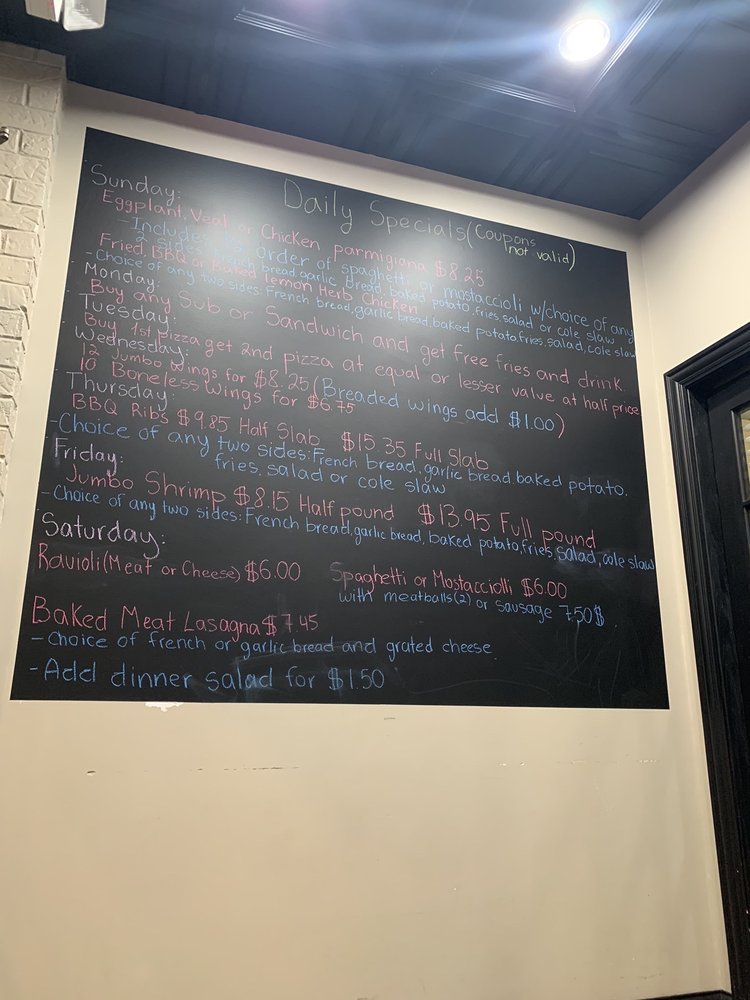 Daily Specials (Coupons not valid)
Sunday:
Eggplant, Veal, or Chicken parmigiana $8.25
- Includes side order of spaghetti or mostaccioli w/choice of any
2 sides: French bread, garlic bread, baked potato, fries, salad or cole slaw
Fried, BBQ or Baked Lemon Herb Chicken
- Choice of any two sides: French bread, garlic bread, baked potato, fries, salad, cole slaw
Monday:
Buy any Sub or Sandwich and get free fries and drink.
Tuesday:
Buy 1st Pizza get 2nd pizza at equal or lesser value at half price
Wednesday:
12 Jumbo Wings for $8.25 (Breaded wings add $1.00)
10 Boneless Wings for $6.75
Thursday:
BBQ Ribs $9.85 Half Slab $15.35 Full Slab
- Choice of any two sides: French bread, garlic bread, baked potato.
fries, salad or cole slaw
Friday:
Jumbo Shrimp $8.15 Half pound $13.95 Full pound
- Choice of any two sides: French bread, garlic bread, baked potato, fries, salad, cole slaw
Saturday:
Ravioli (Meat or Cheese) $6.00 Spaghetti or Mostacciolli $6.00
with meatballs (2) or sausage 7.50$
Baked Meat Lasagna $7.45
- Choice of french or garlic bread and grated cheese
- Add dinner salad for $1.50